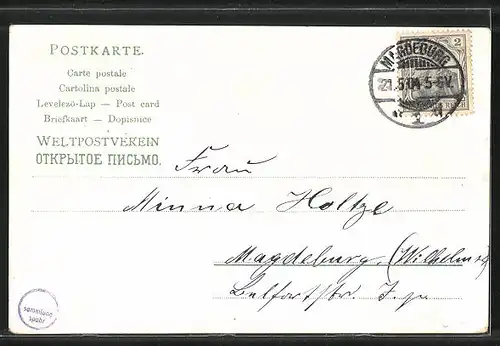 POSTKARTE.
Carte postale
Cartolina postale
Levelező-Lap — Post card
Briefkaart — Dopisnice
WELTPOSTVEREIN
ОТКРЫТОЕ ПИСЬМО.
2
MAGDEBURG
21.5.04.5-6V.
1
REICH
Frau
Minna Holtze
Magdeburg. (Wilhelmst
Belfortstr.
sammlung
spatz